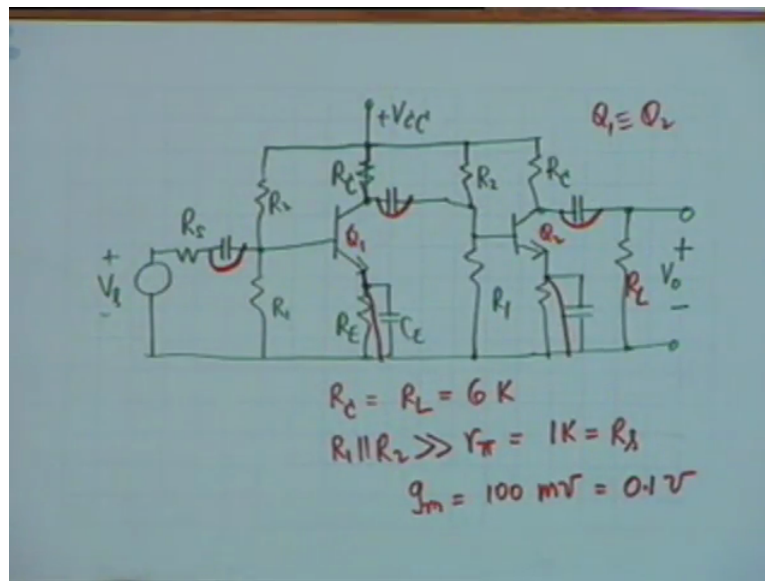 +Vcc
Q₁ ≡ Q₂
Rc
R₂
Rc
R₂
Rs
Q₁
Q₂
+
Vs
-
R₁
RE
CE
R₁
RL
+
Vo
-
Rc = RL = 6 K
R₁ || R₂ >> rπ = 1K = Rs
gm = 100 m℧ = 0.1 ℧